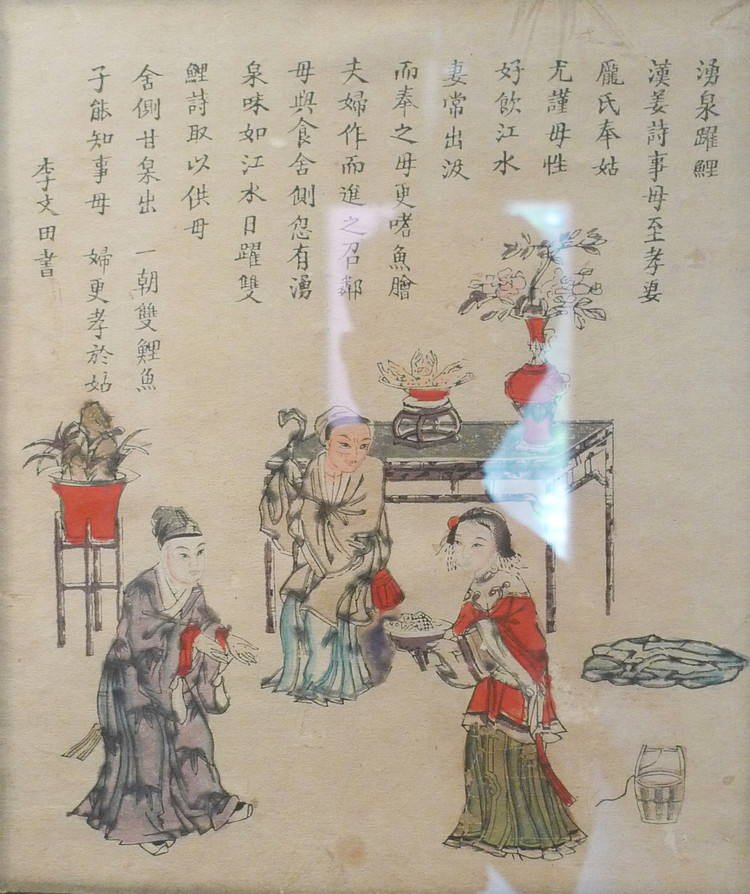 湧泉躍鯉
漢姜詩事母至孝妻
龐氏奉姑
尤謹母性
好飲江水
妻常出汲
而奉之母更嗜魚膾
夫婦作而進之召鄰
母與食舍側忽有湧
泉味如江水日躍雙
鯉詩取以供母
舍側甘泉出 一朝雙鯉魚
子能知事母 婦更孝於姑
李文田書